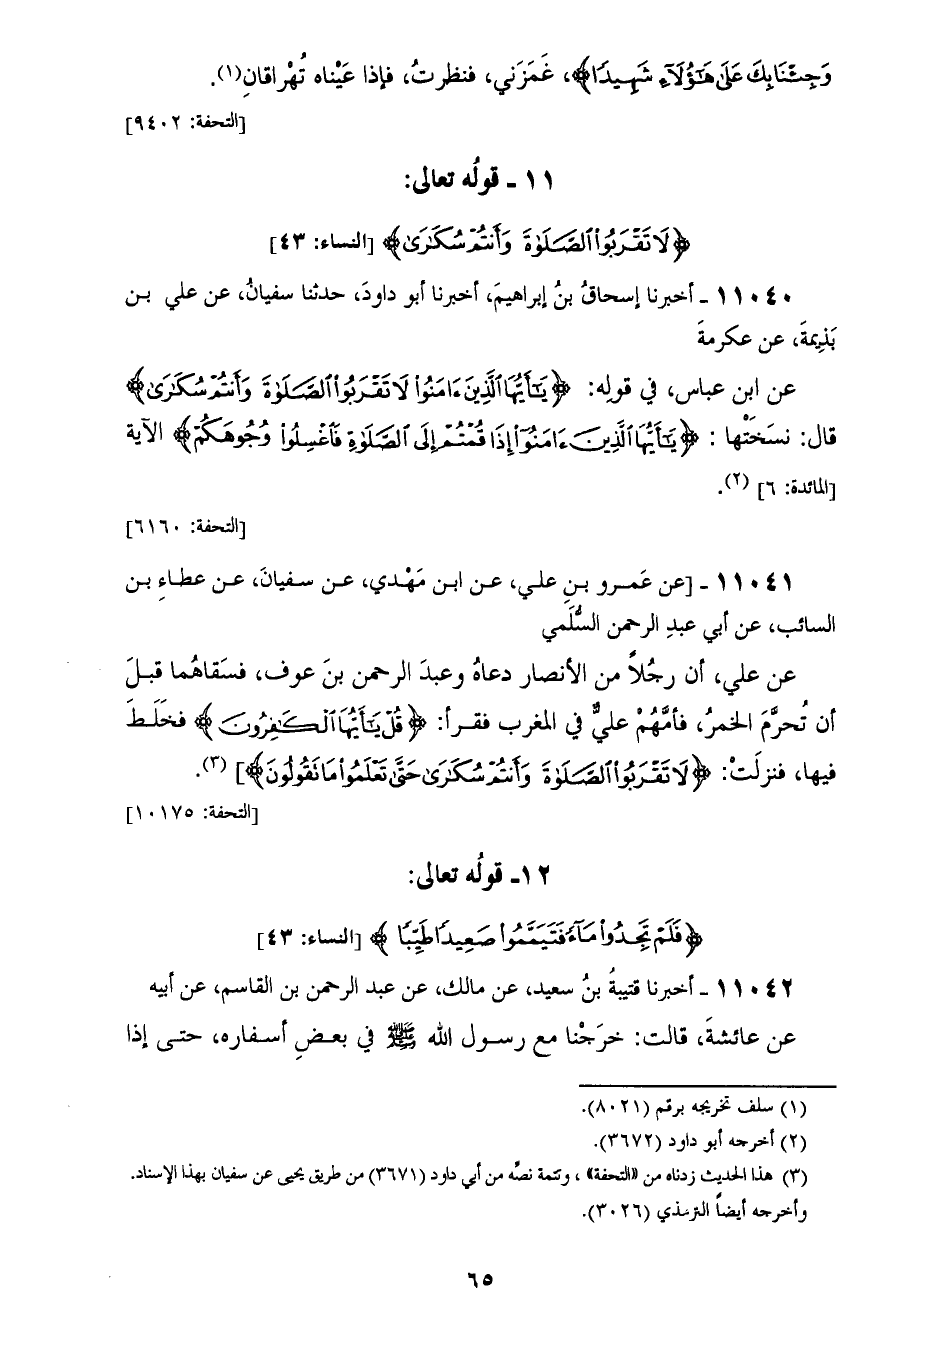 وَجِئْنَا بِكَ عَلَىٰ هَٰٓؤُلَآءِ شَهِيدًا﴾، غَمَزَني، فنظرتُ، فإذا عَيْناه تُهْراقانِ(١).
[التحفة: ٩٤٠٢]
١١ ـ قولُه تعالى:
﴿لَا تَقْرَبُوا۟ ٱلصَّلَوٰةَ وَأَنتُمْ سُكَٰرَىٰ﴾ [النساء: ٤٣]
١١٠٤٠ ـ أخبرنا إسحاقُ بنُ إبراهيمَ، أخبرنا أبو داودَ، حدثنا سفيانُ، عن علي بـن
بَذِيمَةَ، عن عكرمةَ
عن ابن عباس، في قولِه: ﴿يَٰٓأَيُّهَا ٱلَّذِينَ ءَامَنُوا۟ لَا تَقْرَبُوا۟ ٱلصَّلَوٰةَ وَأَنتُمْ سُكَٰرَىٰ﴾
قال: نسَخَتْها : ﴿يَٰٓأَيُّهَا ٱلَّذِينَ ءَامَنُوٓا۟ إِذَا قُمْتُمْ إِلَى ٱلصَّلَوٰةِ فَٱغْسِلُوا۟ وُجُوهَكُمْ﴾ الآية
[المائدة: ٦] (٢).
[التحفة: ٦١٦٠]
١١٠٤١ ـ [عن عَمـرو بـنِ علـي، عـن ابـن مَهْـدي، عـن سـفيانَ، عـن عطـاءِ بـن
السائب، عن أبي عبدِ الرحمن السُّلَمي
عن علي، أن رجُلاً من الأنصار دعاهُ وعبدَ الرحمن بنَ عوف، فسَقاهُما قبـلَ
أن تُحرَّمَ الخمرُ، فأمَّهُمْ عليٌّ في المغرب فقـرأ: ﴿قُلْ يَٰٓأَيُّهَا ٱلْكَٰفِرُونَ﴾ فخَلَـطَ
فيها، فنزلَتْ: ﴿لَا تَقْرَبُوا۟ ٱلصَّلَوٰةَ وَأَنتُمْ سُكَٰرَىٰ حَتَّىٰ تَعْلَمُوا۟ مَا تَقُولُونَ﴾] (٣).
[التحفة: ١٠١٧٥]
١٢ـ قولُه تعالى:
﴿فَلَمْ تَجِدُوا۟ مَآءً فَتَيَمَّمُوا۟ صَعِيدًا طَيِّبًا﴾ [النساء: ٤٣]
١١٠٤٢ ـ أخبرنا قتيبةُ بنُ سعيد، عن مالك، عن عبد الرحمن بن القاسم، عن أبيه
عن عائشةَ، قالت: خرَجْنا مع رسـول الله ﷺ في بعـضِ أسـفاره، حتـى إذا
(١) سلف تخريجه برقم (٨٠٢١).
(٢) أخرجه أبو داود (٣٦٧٢).
(٣) هذا الحديث زدناه من «التحفة» ، وتتمة نصِّه من أبي داود (٣٦٧١) من طريق يحيى عن سفيان بهذا الإسناد.
وأخرجه أيضاً الترمذي (٣٠٢٦).
٦٥